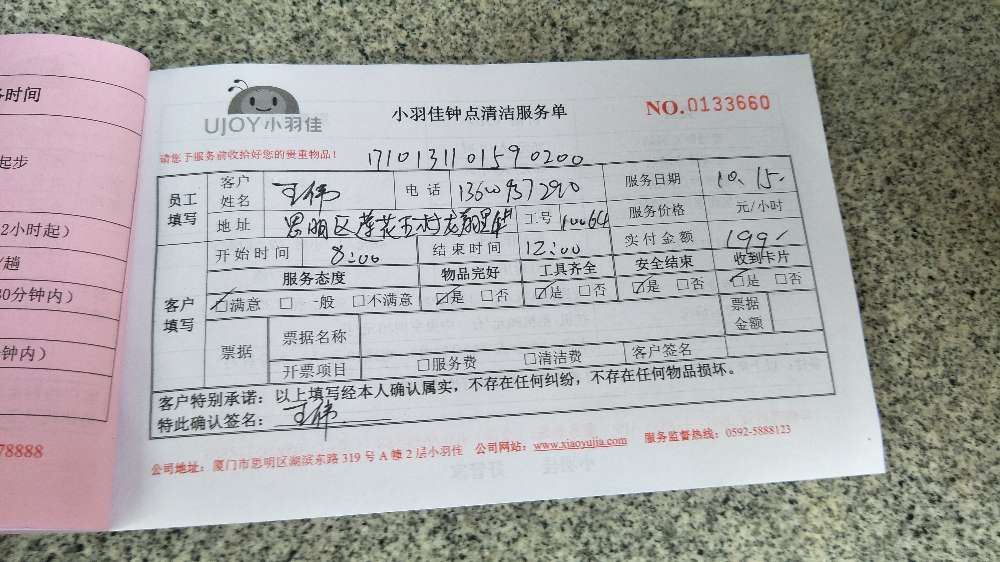 务时间
起步
2小时起）
/趟
30分钟内）
钟内）
78888
UJOY小羽佳
小羽佳钟点清洁服务单
NO.0133660
请您予服务前收拾好您的贵重物品！
1710131101590200
员工填写 客户姓名 王伟 电话 服务日期 10.15.
地址 工号 10064 服务价格 元/小时
开始时间 8:00 结束时间 12:00 实付金额 199.
客户填写 服务态度 物品完好 工具齐全 安全结束 收到卡片
☑满意 □一般 □不满意 ☑是 □否 ☑是 □否 ☑是 □否 ☑是 □否
票据 票据名称 票据金额
开票项目 □服务费 □清洁费 客户签名
客户特别承诺：以上填写经本人确认属实，不存在任何纠纷，不存在任何物品损坏。
特此确认签名：王伟
公司地址：厦门市思明区湖滨东路319号A幢2层小羽佳 公司网站：www.xiaoyujia.com 服务监督热线：0592-5888123